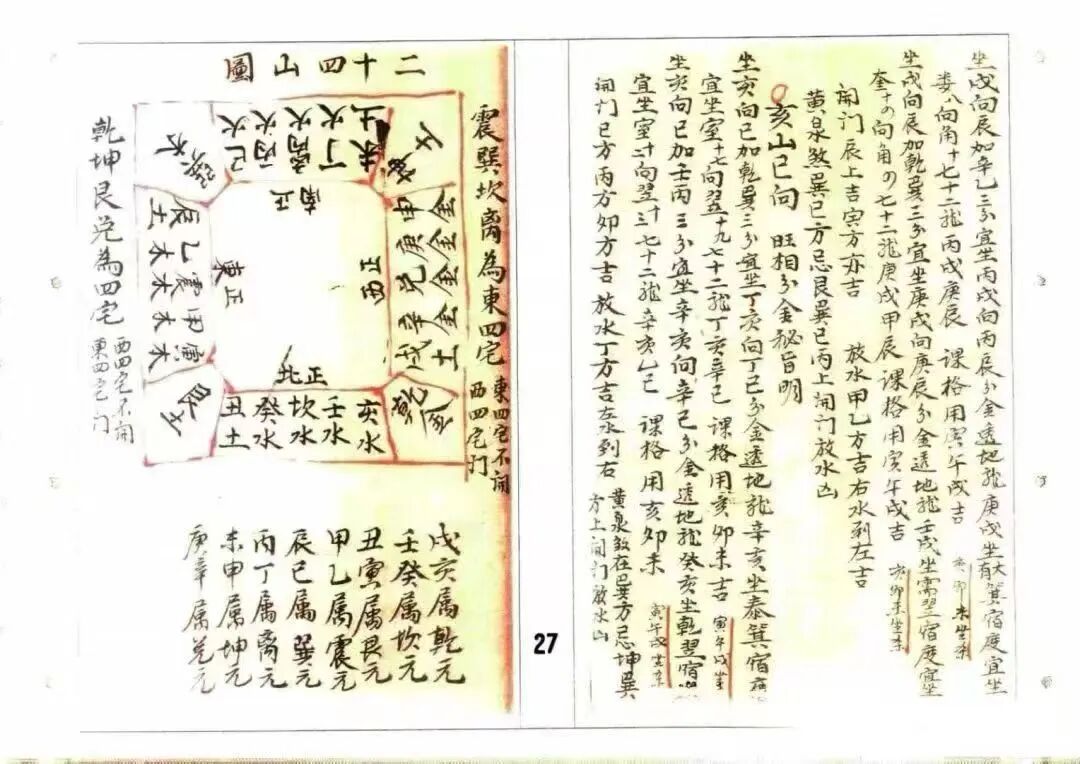 坐戌向辰加辛乙三分宜坐丙戌向丙辰分金透地龍庚戌坐大有箕宿度宜坐
娄八向角十七十二龍丙戌庚辰 课格用寅午戌吉 亥卯未坐杀
坐戌向辰加乾巽三分宜坐庚戌向庚辰分金透地龍壬戌坐需翌宿度宜坐
奎十の向角の七十二龍庚戌甲辰 课格用寅午戌吉 亥卯未坐杀
開门辰上吉寅方亦吉 放水甲乙方吉右水到左吉
黄泉煞巽巳方忌艮巽巳丙上開门放水凶
亥山巳向 旺相分金秘旨明
坐亥向巳加乾巽三分宜坐丁亥向丁巳分金透地龍辛亥坐泰箕宿度
宜坐室十七向翌十九七十二龍丁亥辛巳 课格用亥卯未吉 寅午戌坐
坐亥向巳加壬丙三分宜坐辛亥向辛巳分金透地龍癸亥坐乾翌宿
宜坐室二十向翌三七十二龍辛亥乙巳 课格用亥卯未 寅午戌坐杀
開门巳方丙方卯方吉 放水丁方吉左水到右 黄泉煞在巴巽方忌坤巽
方上開门放水凶
二十四山圖
震巽坎離為東四宅 東四宅不開
西四宅门
乾坤艮兑為四宅 西四宅不開
東四宅门
坤土
未土
丁火
离火
丙火
巳火
巽木
正南
申金
庚金
兑金
辛金
戌土
正西
辰土
乙木
震木
甲木
寅木
正東
正北
乾金
亥水
壬水
坎水
癸水
丑土
艮土
戌亥属乾元
壬癸属坎元
丑寅属艮元
甲乙属震元
辰巳属巽元
丙丁属离元
未申属坤元
庚辛属兑元
27